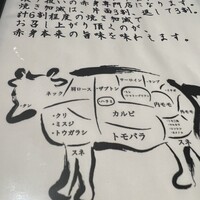 赤身専門店になります。
焼き加減は、片面3割、返して3割、
計6割程度の焼き加減で
お召し上がり頂くのが
赤身本来の旨味を味わえます。
タン
ネック
肩ロース
ザブトン
サーロイン
ランプ
ハラミ
ヒレ
内モモ
・クリ
・ミスジ
・トウガラシ
カルビ
トモバラ
内モモ
スネ
スネ